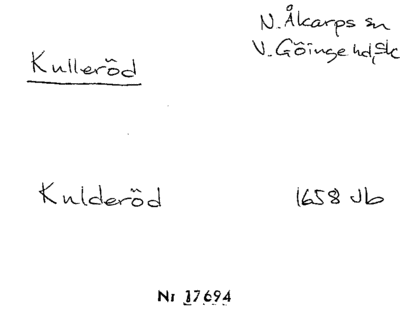 N. Åkarps sn
V. Göinge hd, Sk
Kulleröd
Kulderöd 1658 Jb
Nr 17694